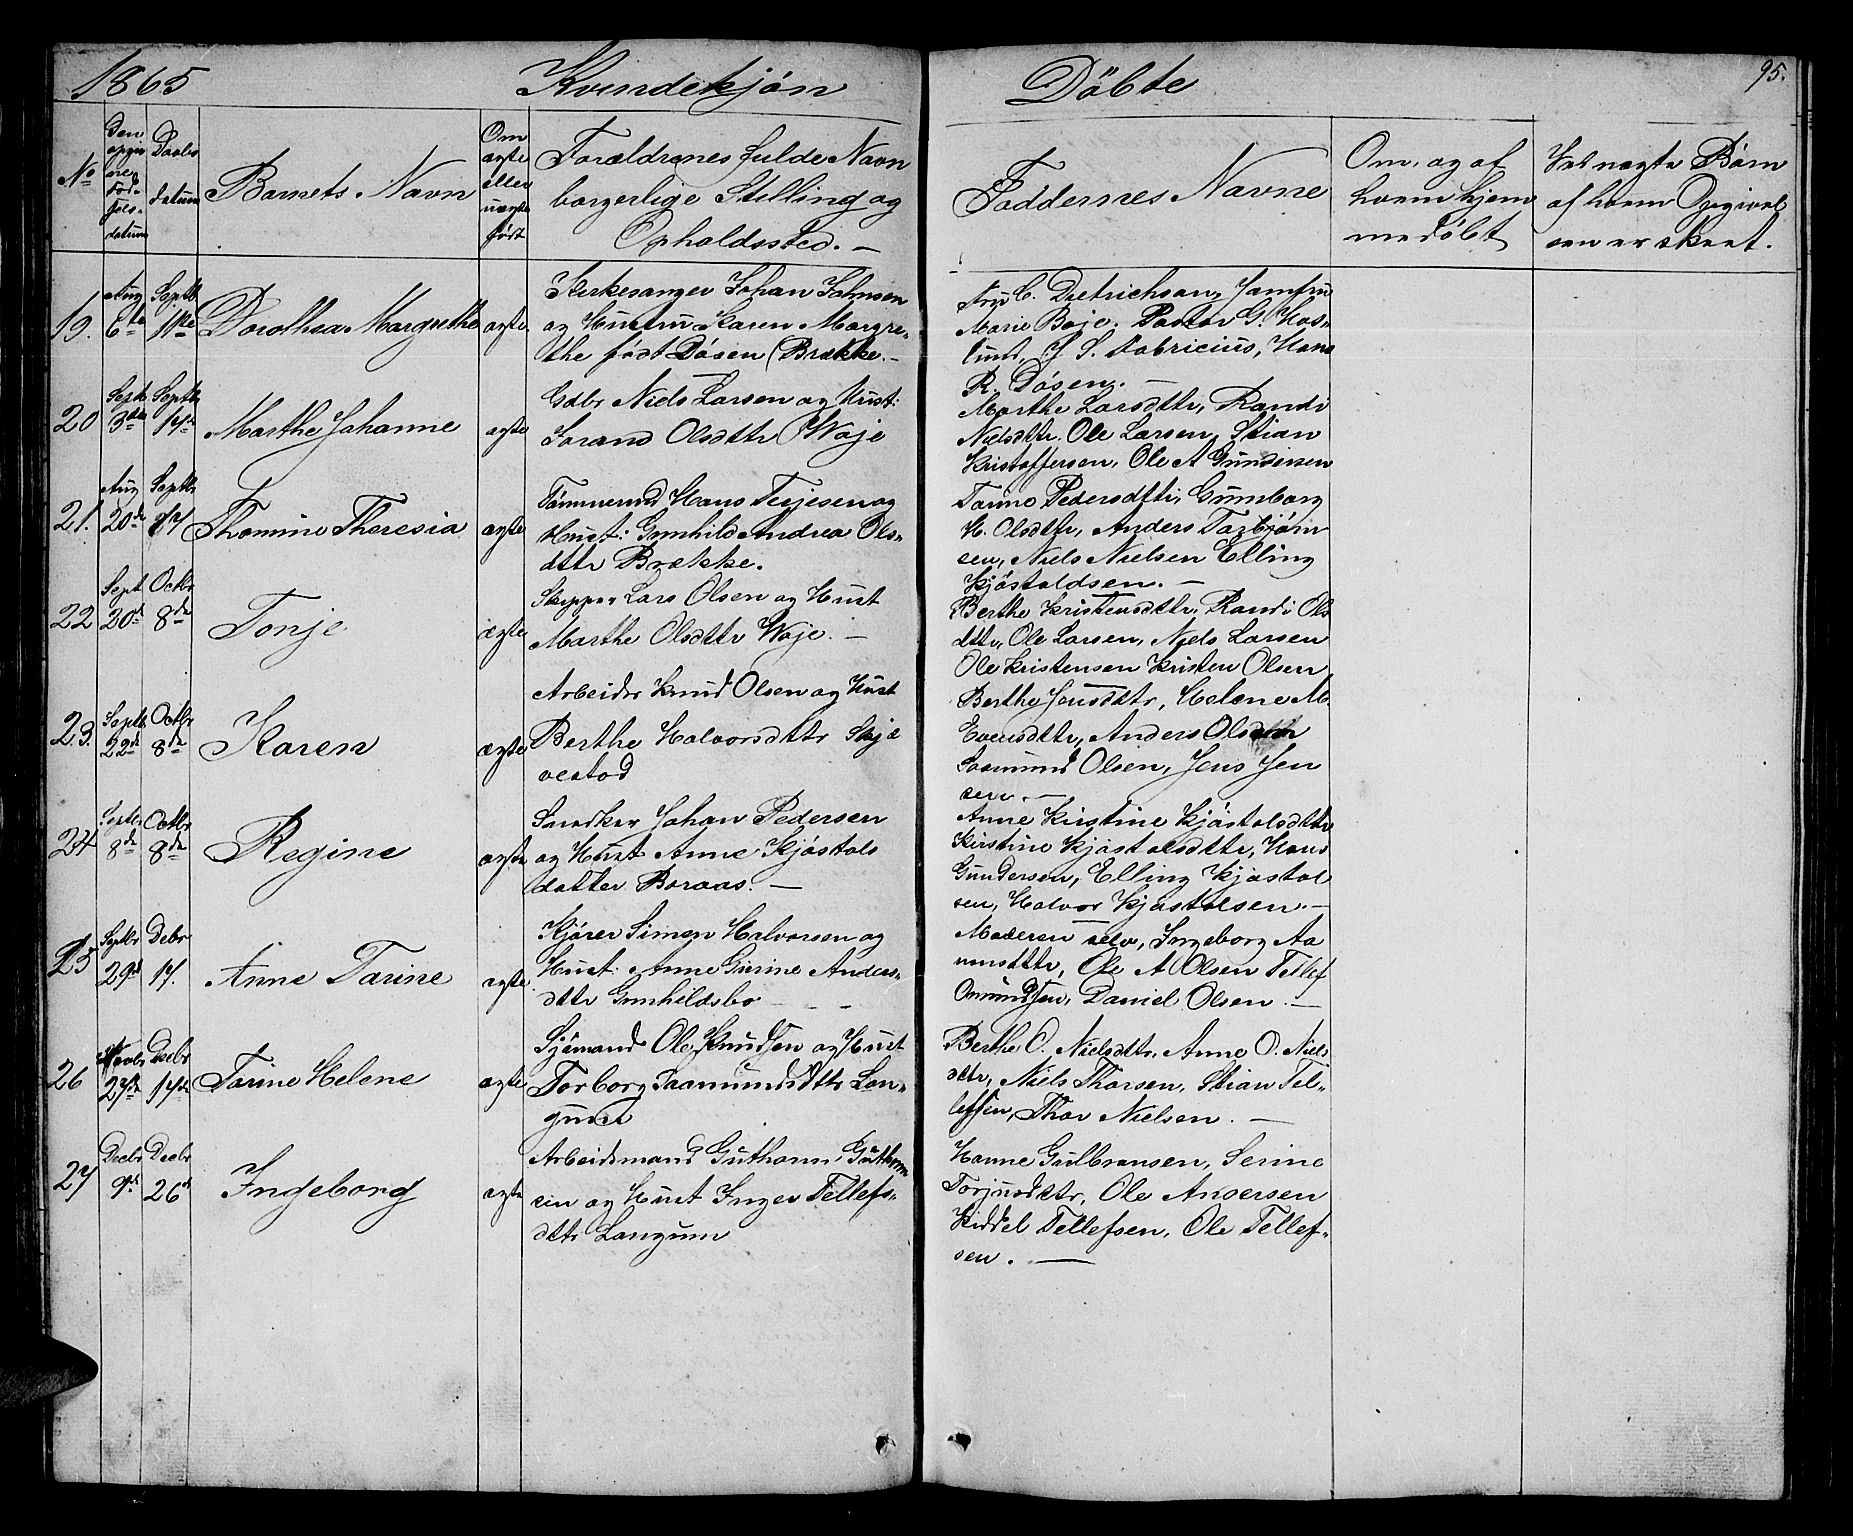 1865 Kvindekjön Döbte 95.
No
Den opgivne Födselsdatum
Daabsdatum
Barnets Navn
Om ægte eller uægte födt
Forældrenes fulde Navn
borgerlige Stilling og
Opholdssted. —
Faddernes Navne
Om, og af
hvem hjem
medöbt
Ved uægte Börn
af hvem Opgivel
sen er skeet.
19. Aug 6te Septb 1ste Dorothea Margrethe ægte
Kirkesanger Johan Johnsen
og Hustru Karen Margre-
the födt Dösen (Brække. —
Fru C. Dietrichsen, Jomfru
Marie Boje. Pastor G. Has-
lund, J S. Fabricius, Hans
R. Dösen. —
20 Septb 3die Septb 17de Marthe Johanne ægte
Gdbr Niels Larsen og Hust:
Sorand Olsdttr (Woje
Marthe Larsdttr, Randi
Nielsdttr. Ole Larsen, Stian
Kristoffersen, Ole A Gundersen
21. Aug 20de Septb 17 Thomine Theresia ægte
Tömmermd Hans Terjesen og
Hust: Gunhild Andrea Ols-
dttr Brække.
Tarine Pedersdttr, Gunborg
H. Olsdttr, Anders Torbjörn
sen, Niels Nielsen Elling
Kjöstoldsen. —
22 Sept 20de Octbr 8de Tonje ægte
Skipper Lars Olsen og Hust
Marthe Olsdttr Woje. —
Berthe Kristensdttr, Randi Ols
dttr, Ole Larsen, Niels Larsen
Ole Kristensen Kristen Olsen
23. Septb 22de Octbr 8de Karen ægte
Arbeider Knud Olsen og Hust
Berthe Halvorsdttr Skjæ
vestod
Berthe Jensdttr, Helene M.
Evensdttr, Anders Olsen
Saamund Olsen, Jens Jen
sen. —
24 Septbr 8de Octbr 8de Regine ægte
Snedker Johan Pedersen
og Hust Anne Kjöstols
datter Boraas. —
Anne Kirstine Kjöstolsdttr
Kirstine Kjöstolsdttr, Hans
Gundersen, Elling Kjöstol
sen, Halvor Kjöstolsen. —
25 Septbr 29de Debr 17. Anne Tarine ægte
Kjörer Simen Halvorsen og
Hust: Anne Gurine Anders-
dttr Gunhildsbo
Moderen selv, Ingeborg Aa
nunsdttr, Ole A Olsen Tellef
Omundsen, Daniel Olsen. —
26 Novbr 27de Decbr 17de Tarine Helene ægte
Sjömand Ole Knudsen og Hust
Torborg Saamundsdttr Lan-
gum
Berthe O. Nielsdttr, Anne O. Niels
dttr, Niels Thorsen, Stian Tel-
lefsen, Thor Nielsen. —
27 Decbr 9de Decbr 26de Ingeborg ægte
Arbeidsmand Guthorm Guthorm
sen og Hust Inger Tellefs-
dttr Langum
Hanne Gulbransen, Serine
Torjusdttr, Ole Andersen
Kiddel Tellefsen, Ole Tellef-
sen. —